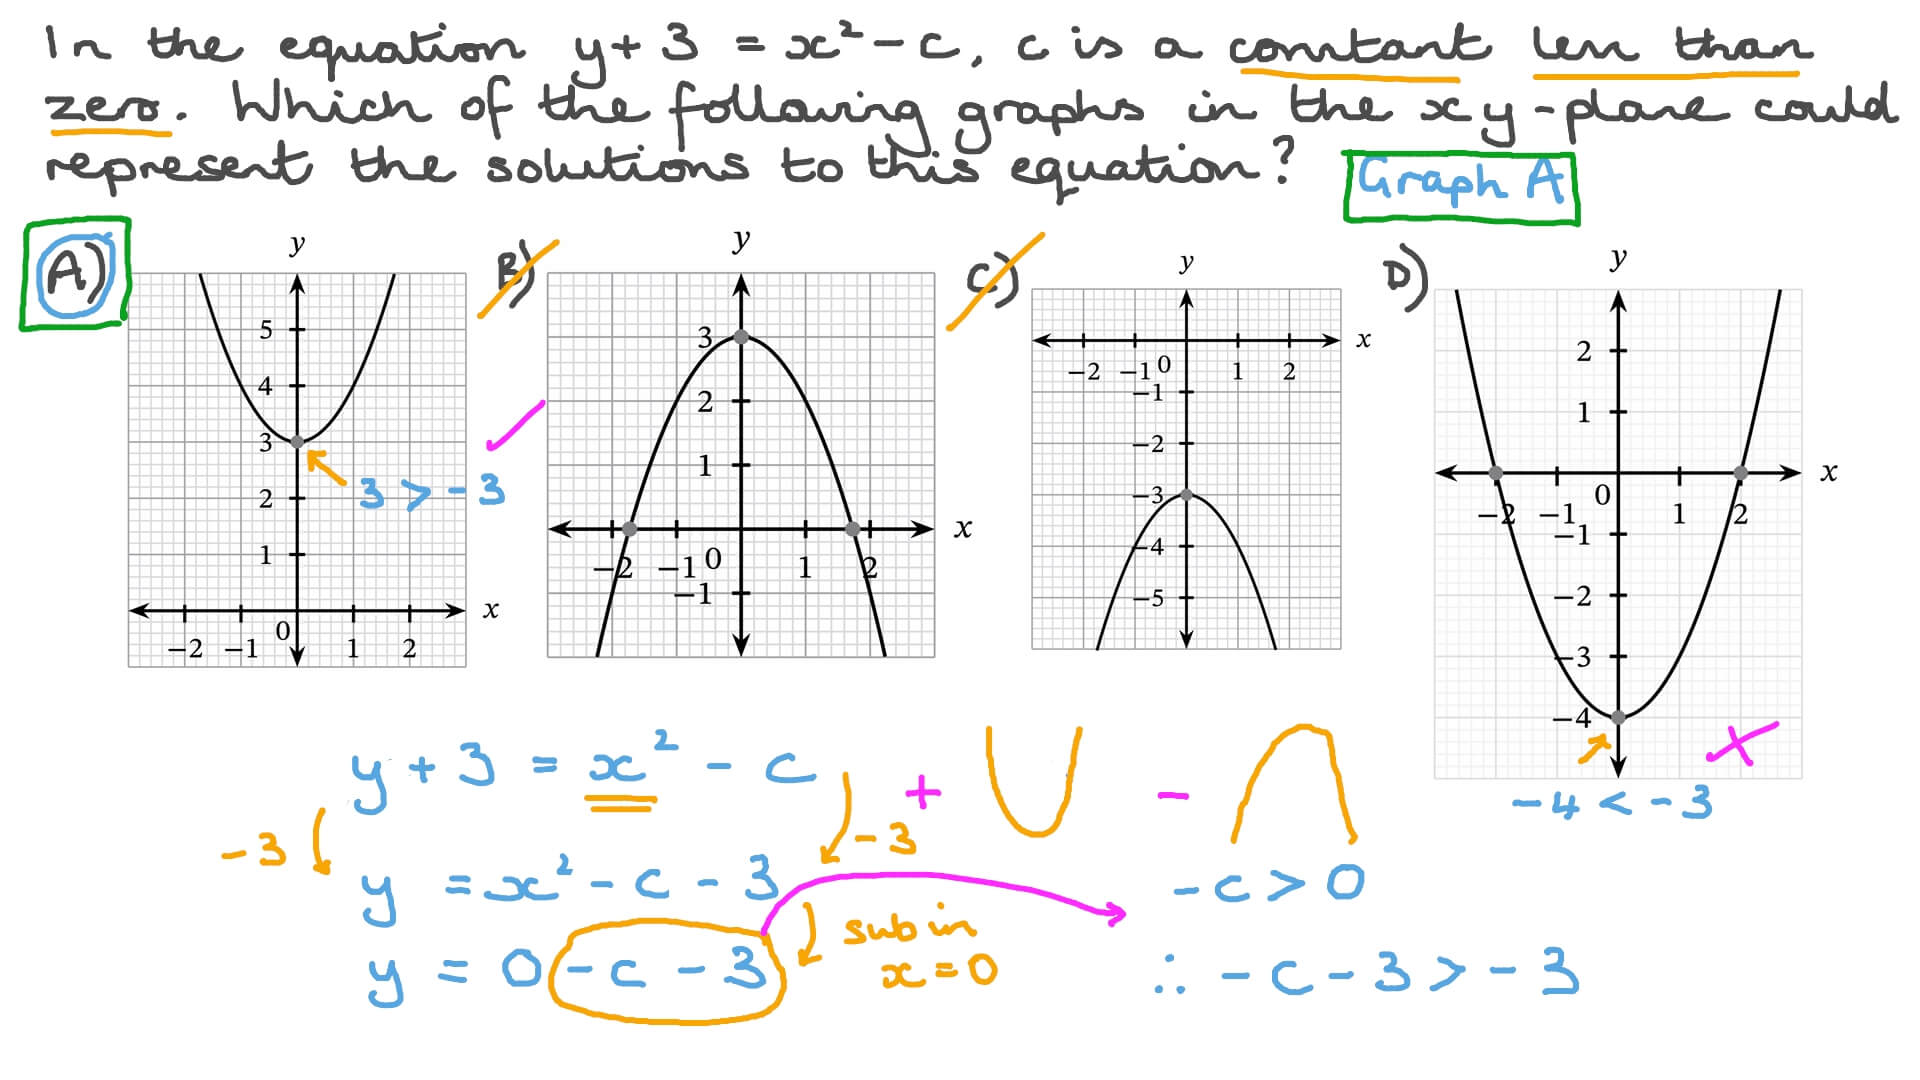 In the equation y + 3 = x² - c, c is a constant less than
zero. Which of the following graphs in the xy-plane could
represent the solutions to this equation? Graph A
A)
y
5
4
3
2
1
x
-2 -1 0 1 2
3 > -3
B)
y
3
2
1
x
-2 -1 0 1 2
-1
C)
y
x
-2 -1 0 1 2
-1
-2
-3
-4
-5
D)
y
2
1
x
-2 -1 0 1 2
-1
-2
-3
-4
-4 < -3
y + 3 = x² - c
+ -
-3 -3
y = x² - c - 3
-c > 0
y = 0 - c - 3
sub in
x = 0
∴ -c - 3 > -3